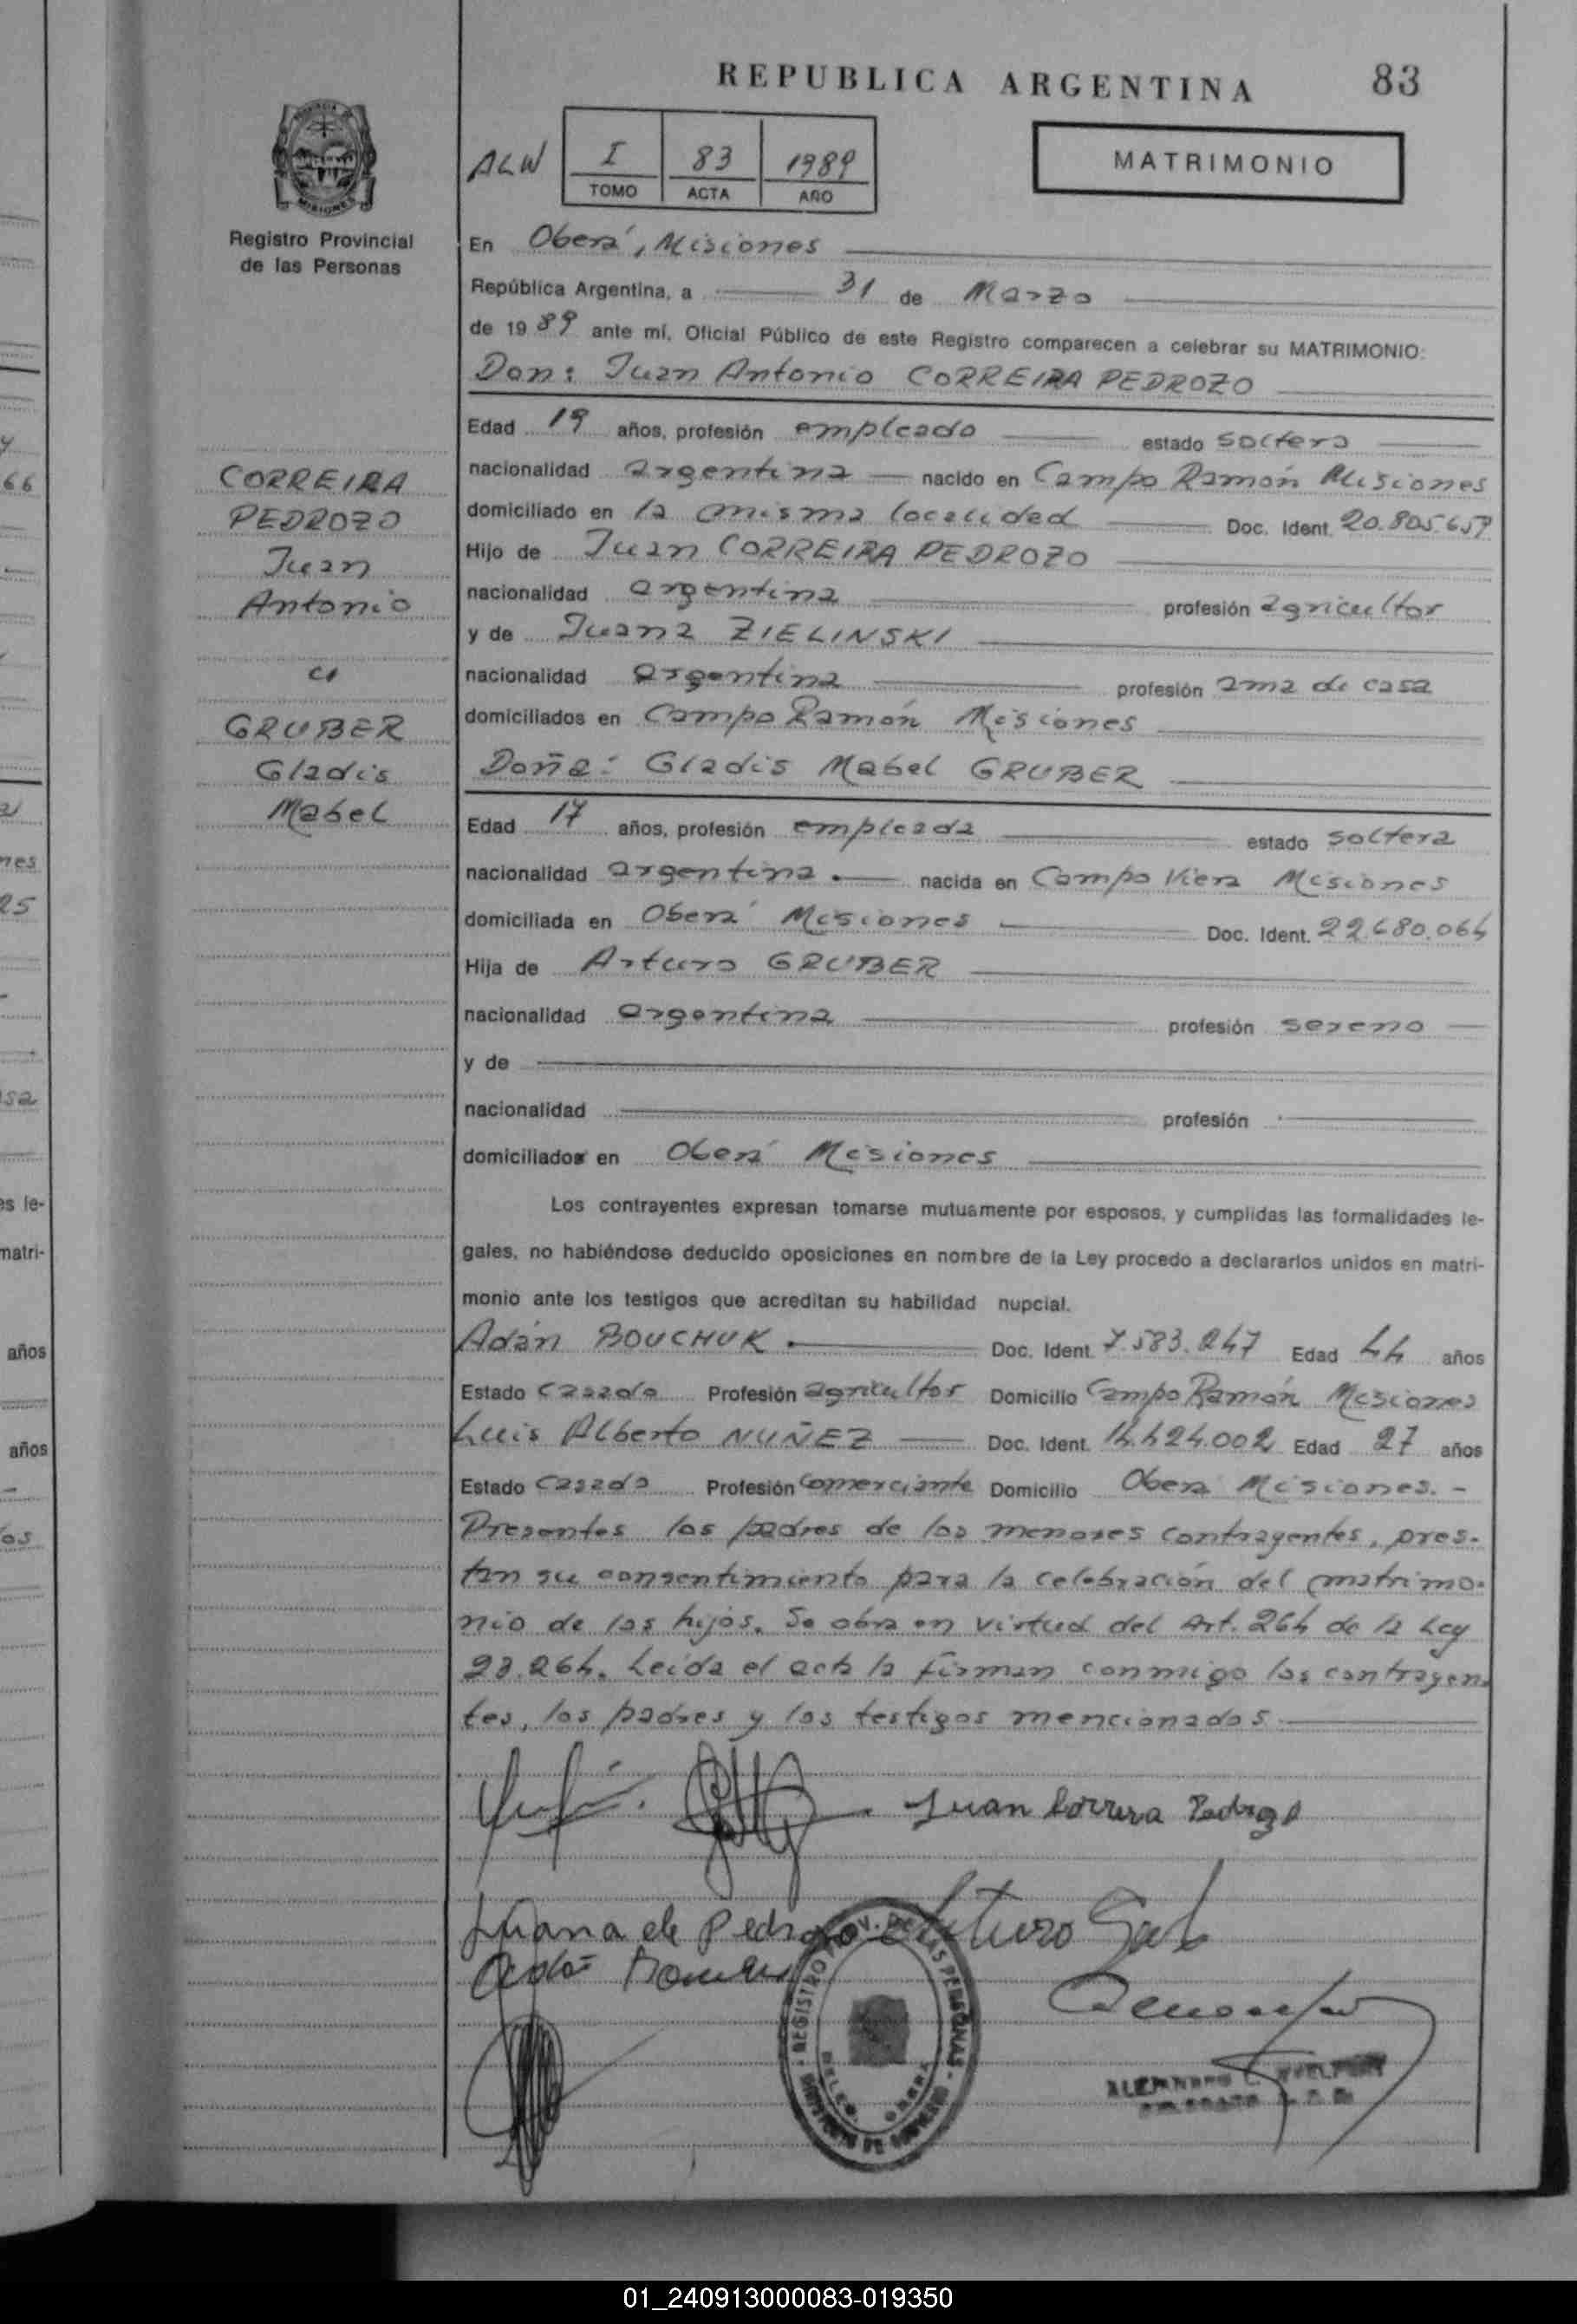 REPUBLICA ARGENTINA 83
ALW I 83 1989
TOMO ACTA AÑO
MATRIMONIO
Registro Provincial
de las Personas
En Oberá, Misiones
República Argentina, a 31 de Marzo
de 1989 ante mí, Oficial Público de este Registro comparecen a celebrar su MATRIMONIO:
Don: Juan Antonio CORREIRA PEDROZO
Edad 19 años, profesión empleado estado soltero
nacionalidad argentina nacido en Campo Ramón Misiones
domiciliado en la misma localidad Doc. Ident. 20.805.659
Hijo de Juan CORREIRA PEDROZO
nacionalidad argentina profesión agricultor
y de Juana ZIELINSKI
nacionalidad argentina profesión ama de casa
domiciliados en Campo Ramón Misiones
Doña: Gladis Mabel GRUBER
CORREIRA
PEDROZO
Juan
Antonio
c/
GRUBER
Gladis
Mabel
Edad 17 años, profesión empleada estado soltera
nacionalidad argentina. nacida en Campo Viera Misiones
domiciliada en Oberá Misiones Doc. Ident. 22.680.064
Hija de Arturo GRUBER
nacionalidad argentina profesión sereno
y de
nacionalidad profesión
domiciliados en Oberá Misiones
Los contrayentes expresan tomarse mutuamente por esposos, y cumplidas las formalidades le-
gales, no habiéndose deducido oposiciones en nombre de la Ley procedo a declararlos unidos en matri-
monio ante los testigos que acreditan su habilidad nupcial.
Adán BOUCHUK Doc. Ident. 7.583.247 Edad 44 años
Estado casado Profesión agricultor Domicilio Campo Ramón Misiones
Luis Alberto NUÑEZ Doc. Ident. 14.424.002 Edad 27 años
Estado casado Profesión comerciante Domicilio Oberá Misiones.-
Presentes los padres de los menores contrayentes, pres-
tan su consentimiento para la celebración del matrimo-
nio de los hijos. Se obra en virtud del Art. 264 de la Ley
23.264. Leída el acta la firman conmigo los contrayen-
tes, los padres y los testigos mencionados
Juan Correra Pedrozo
Juana de Pedrozo Arturo
REGISTRO PROV. DE LAS PERSONAS
OBERA
01_240913000083-019350